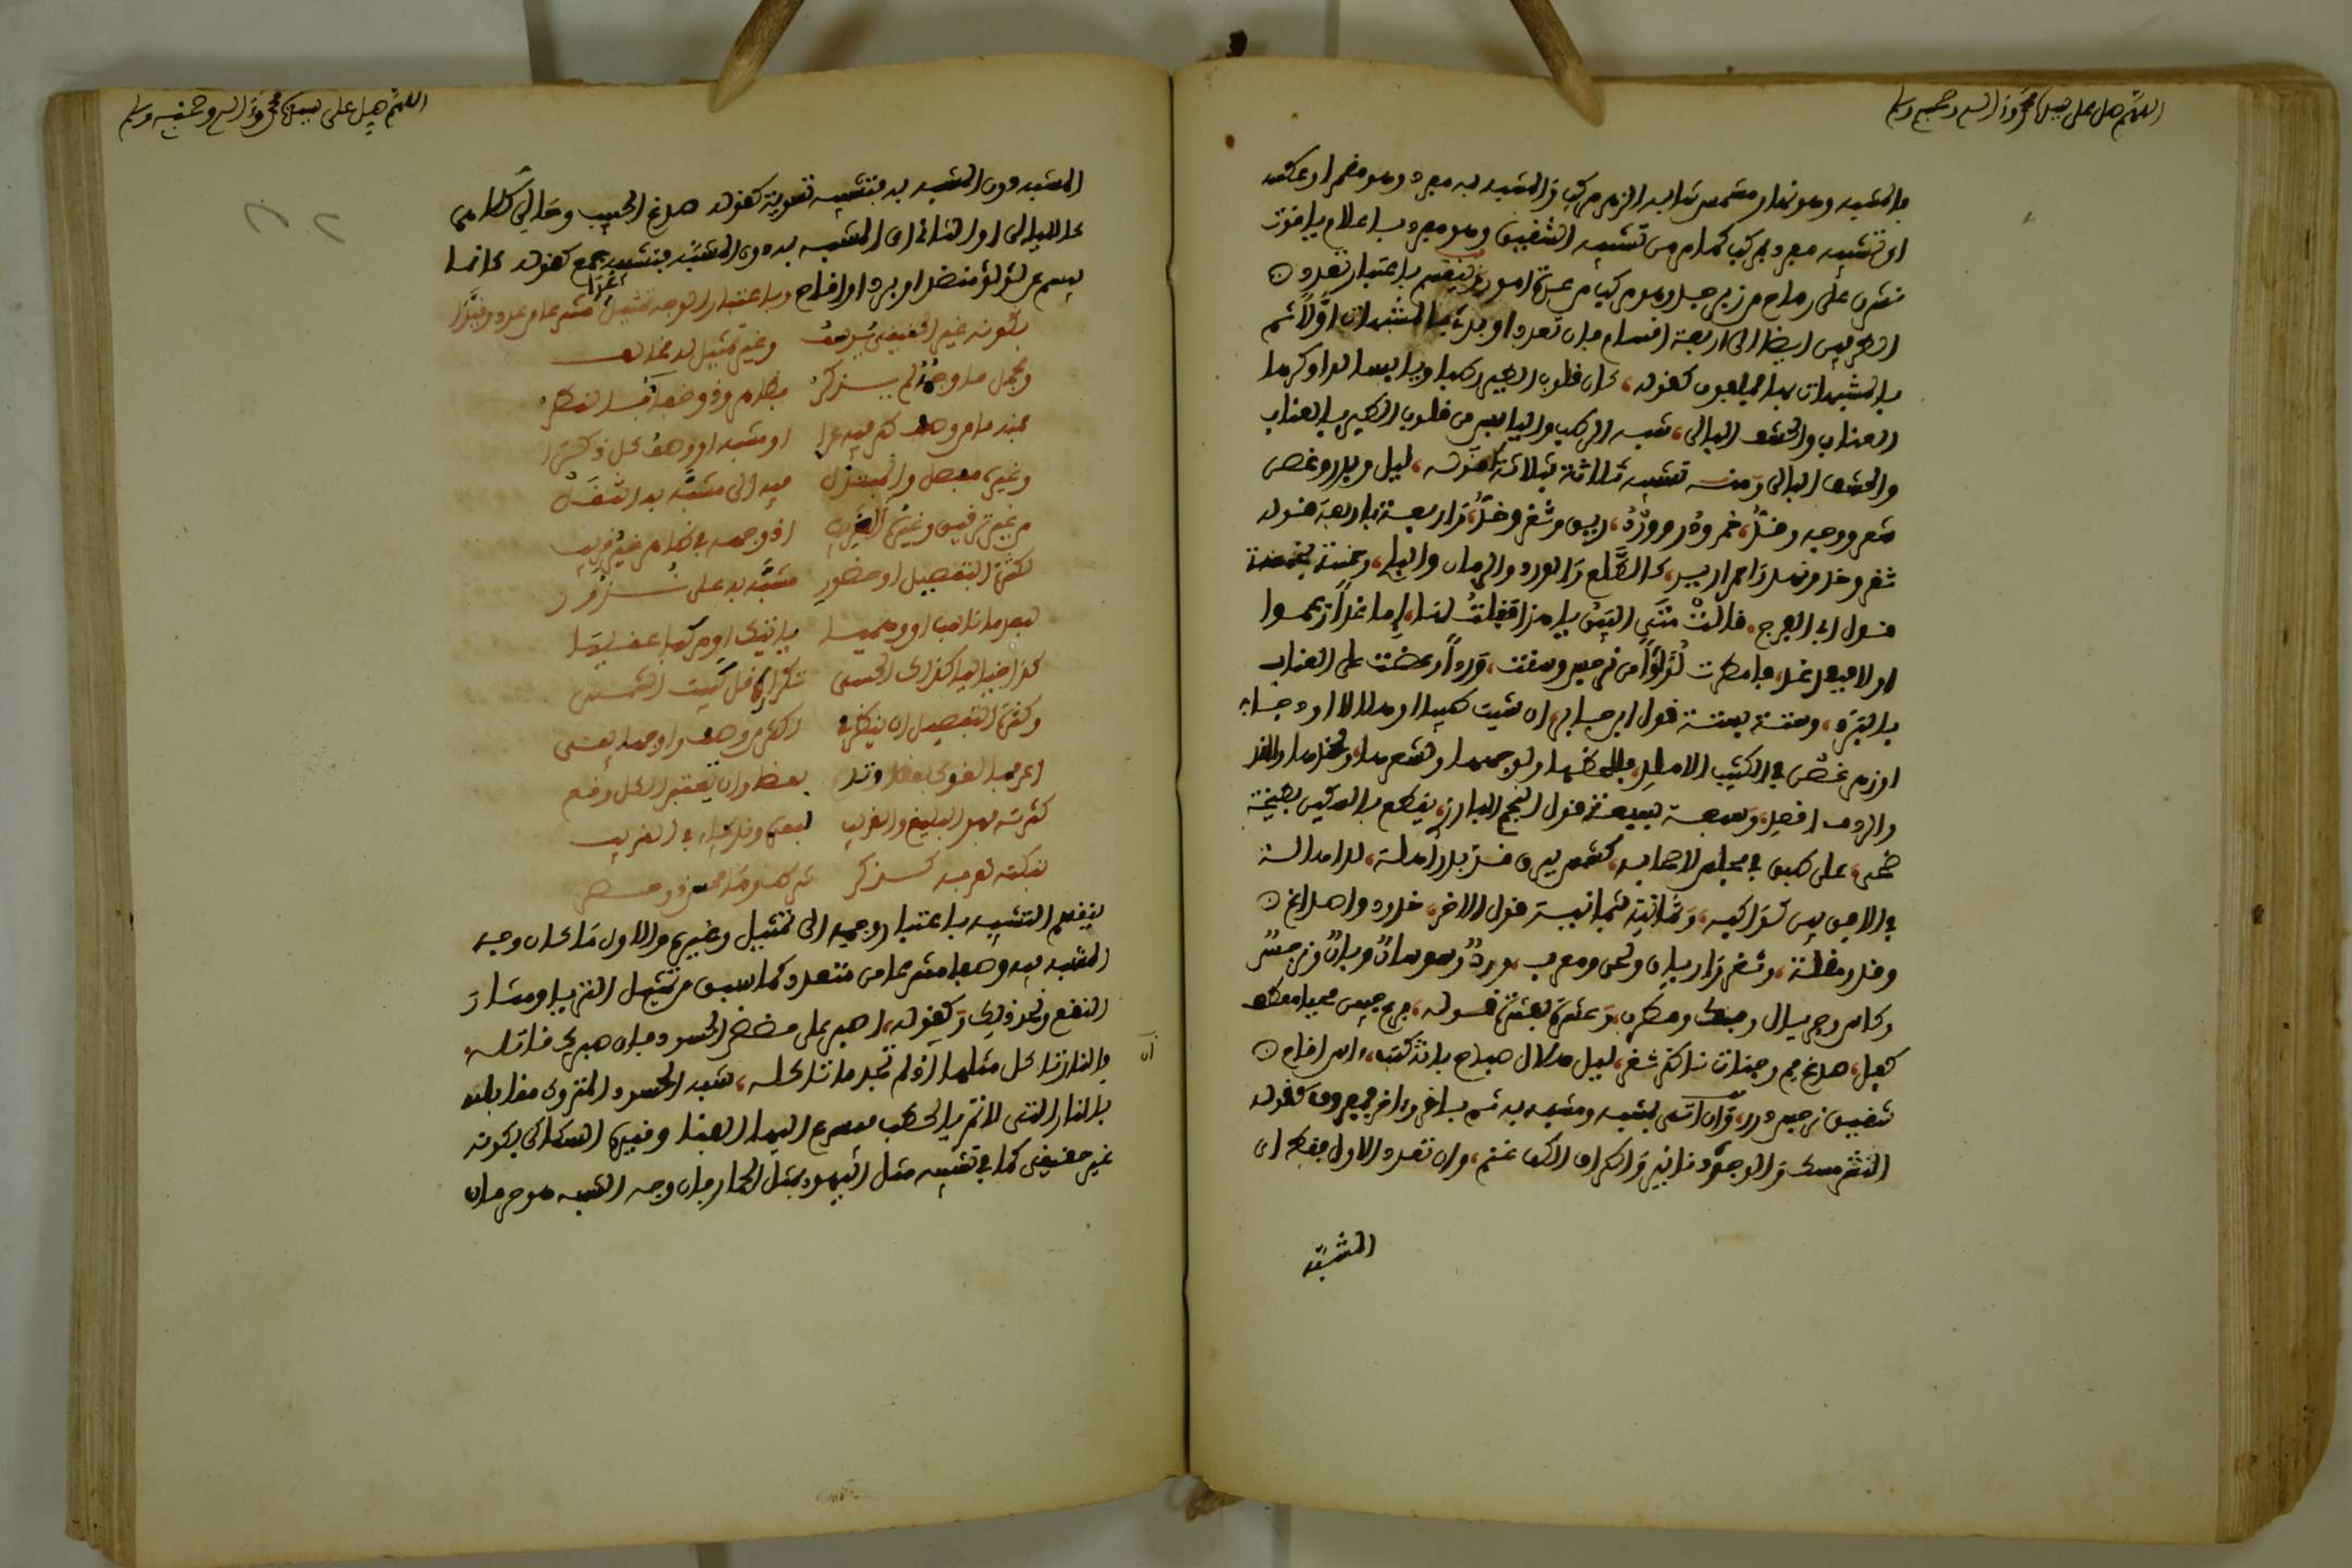 اللهم صل على سيدنا محمد وآله وصحبه وسلم
فالمشبه وهو نهار مشمس شابه الزهر مركب والمشبه به مفرد وهو مقمر او عكسه
اى تشبيه مفرد بمركب كما مر من تشبيه الشقيق وهو مفرد باعلام ياقوت
نشرن على رماح من زبرجد وهو مركب من عدة امور وينقسم باعتبار تعدد
الطرفين ايضا الى اربعة اقسام فان تعددا وبدئ بالمشبهات اولا ثم
بالمشبهات بها فملفوف كقوله كان قلوب الطير رطبا ويابسا لدا وكرها
العناب والحشف البالى شبه الرطب واليابس من قلوب الطير بالعناب
والحشف البالى ومنه تشبيه ثلاثة بثلاثة كقوله ليل وبدر وغصن
شعر ووجه وقد خمر ودر وورد ريق وثغر وخد واربعة باربعة كقوله
ثغر وخد ونهد واحمرار يد كالطلع والورد والرمان والبلح وخمسة بخمسة
كقول ابى الفرج قالت متى البين يا هذا فقلت لها اما غدا زعموا
او لا فبعد غد فامطرت لؤلؤا من نرجس وسقت وردا وعضت على العناب
بالبرد وستة بستة قول ابن جابر ان شئت ظبيا او هلالا او دجا
او زهر غصن فى الكثيب الاملد فللحظها ولوجهها ولشعرها ولخدها والقد
والردف اقصد وسبعة بسبعة قول النجم البارزى يقطع بالسكين بطيخة
ضحى على طبق فى مجلس لاصحابه كشمس ببرق قد بدرا اهلة لدا هالة
فى الافق بين كواكبه وثمانية بثمانية قول الاخر خدود واصداغ
وقد ومقلة وثغر وارياق ولحن ومعرب وورد وسوسان وبان ونرجس
وكاس وجريال وجنك ومطرب وعشرة بعشرة قوله فرع جبين محيا معطف
كفل صدغ فم وجنات ناظر ثغر ليل هلال صباح بانة كثب اس اقاح
شقيق نرجس درر وان اتى بمشبه ومشبه به ثم باخر واخر فمفروق كقوله
النشر مسك والوجوه دنانير واطراف الاكف عنم وان تعدد الاول فقط اى
المشبه
اللهم صل على سيدنا محمد وآله وصحبه وسلم
المشبه دون المشبه به فتشبيه تسوية كقوله صدغ الحبيب وحالى كلاهما
كالليالى او الثانى اى المشبه به دون المشبه فتشبيه جمع كقوله كانما
يبسم عن لؤلؤ منضد او برد او اقاح وباعتبار الوجه تمثيل اغدا منتزعا من عدد وقيدا
بكونه غير الحقيقى يوسف وغير تمثيل له مخالف
ومجمل ما وجهه لم يذكر فظاهر وذو خفا بالنظر
فمنه ما من وصف طرفيه عرا او مشبه او وصف كل ذكرا
وغيره مفصل والمبتذل فيه الى مشبه به انتقل
من غير تدقيق وغيره الغريب اذ وجهه فى ظاهر غير قريب
لكثرة التفصيل او حضور مشبه به على ندور
لبعد ما ناسب او وهميا يانيك او مركبا عقليا
كذا خياليا كذاك الحسى تكراره قل كبيت الشمس
وكثرة التفصيل ان ينظر فى اكثر من وصف واوجها يفى
اعرفها القوى بعضا وتدع بعضا وان تعتبر الكل وقع
كثرته فهو البليغ والغريب لبعده وقد يجاء فى القريب
بنكتة تغربه كـذكر
ينقسم التشبيه باعتبار وجهه الى تمثيل وغيره والاول ما كان وجه
المشبه به وصفا منتزعا من متعدد كما سبق من تشبيه الثريا ومثار
النقع ونحو ذلك وكقوله اصبر على مضض الحسود فان صبرك قاتله
فالنار تاكل مثلها اذا لم تجد ما تاكله شبه الحسود المتروك مقابلته
بالنار التى لا تمد بالحطب فيسرع اليها الفنا وقيده السكاكى بكونه
غير حقيقى كما فى تشبيه مثل اليهود بمثل الحمار فان وجه الشبه هو حرمان